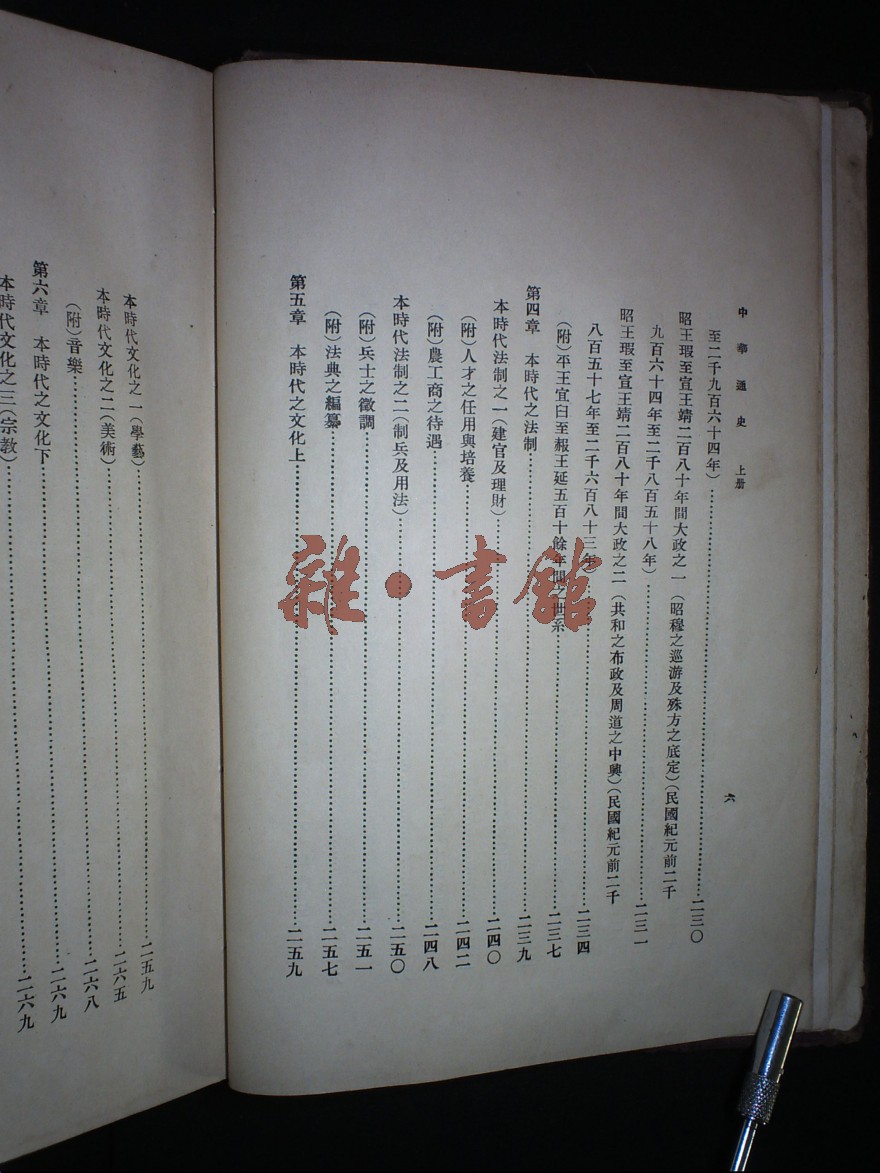 中華通史 上册
六
至二千九百六十四年）……二三〇
昭王瑕至宣王靖二百八十年間大政之一（昭穆之巡游及殊方之底定）（民國紀元前二千
九百六十四年至二千八百五十八年）……二三一
昭王瑕至宣王靖二百八十年間大政之二（共和之布政及周道之中興）（民國紀元前二千
八百五十七年至二千六百八十三年）……二三四
（附）平王宜臼至赧王延五百十餘年間之世系……二三七
第四章 本時代之法制……二三九
本時代法制之一（建官及理財）……二四〇
（附）人才之任用與培養……二四二
（附）農工商之待遇……二四八
本時代法制之二（制兵及用法）……二五〇
（附）兵士之徵調……二五一
（附）法典之編纂……二五七
第五章 本時代之文化上……二五九
本時代文化之一（學藝）……二五九
本時代文化之二（美術）……二六五
（附）音樂……二六八
第六章 本時代之文化下……二六九
本時代文化之三（宗教）……二六九
雜·書館